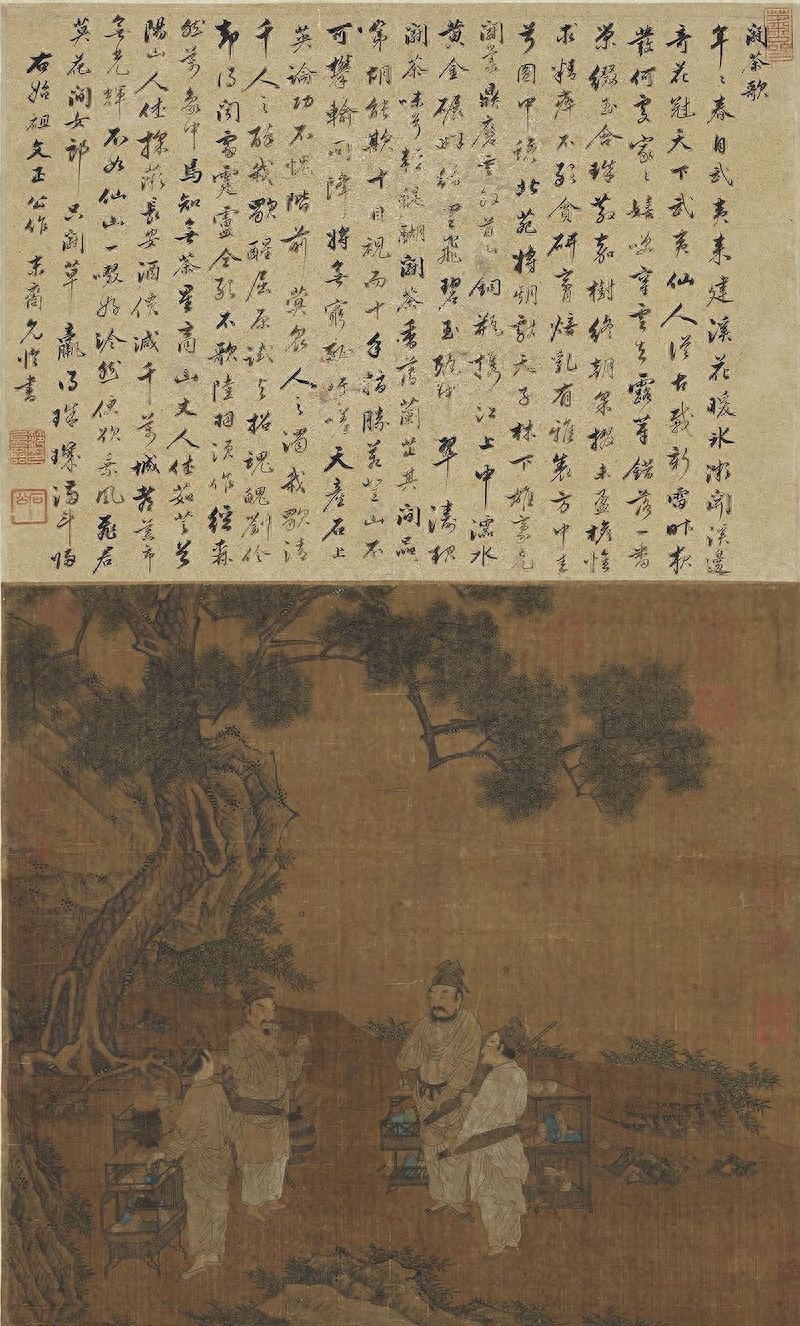 闘茶歌
年〻春自武夷来建溪花暖冰微開溪邊
奇花冠天下武夷仙人從古栽新雷昨夜
發何處家〻嬉笑穿雲去露芽錯落一番
榮綴玉含珠散嘉樹終朝采掇未盈襜惟
求精粹不敢貪研膏焙乳有雅製方中圭
兮圓中蟾北苑將期獻天子林下雄豪先
闘美鼎磨雲外首山銅瓶携江上中濡水
黄金碾畔緑雲飛碧玉甌中翠濤起
闘茶味兮輕醍醐闘茶香薄蘭芷其間品
第胡能欺十目視而十手指勝若登山不
可攀輸同降將無窮恥吁嗟天産石上
英論功不愧階前蓂衆人之濁我歌清
千人之醉我歌醒屈原試與招魂魄劉伶
却得聞雷霆盧仝敢不歌陸羽須作經森
然萬象中焉知無茶星商山丈人休茹芝首
陽山人休採薇長安酒價減千萬城都藥市
無光輝不如仙山一啜好泠然便欲乘風飛君
莫花間女郎只闘草贏得珠璣滿斗歸
右始祖文正公作末裔允臨書